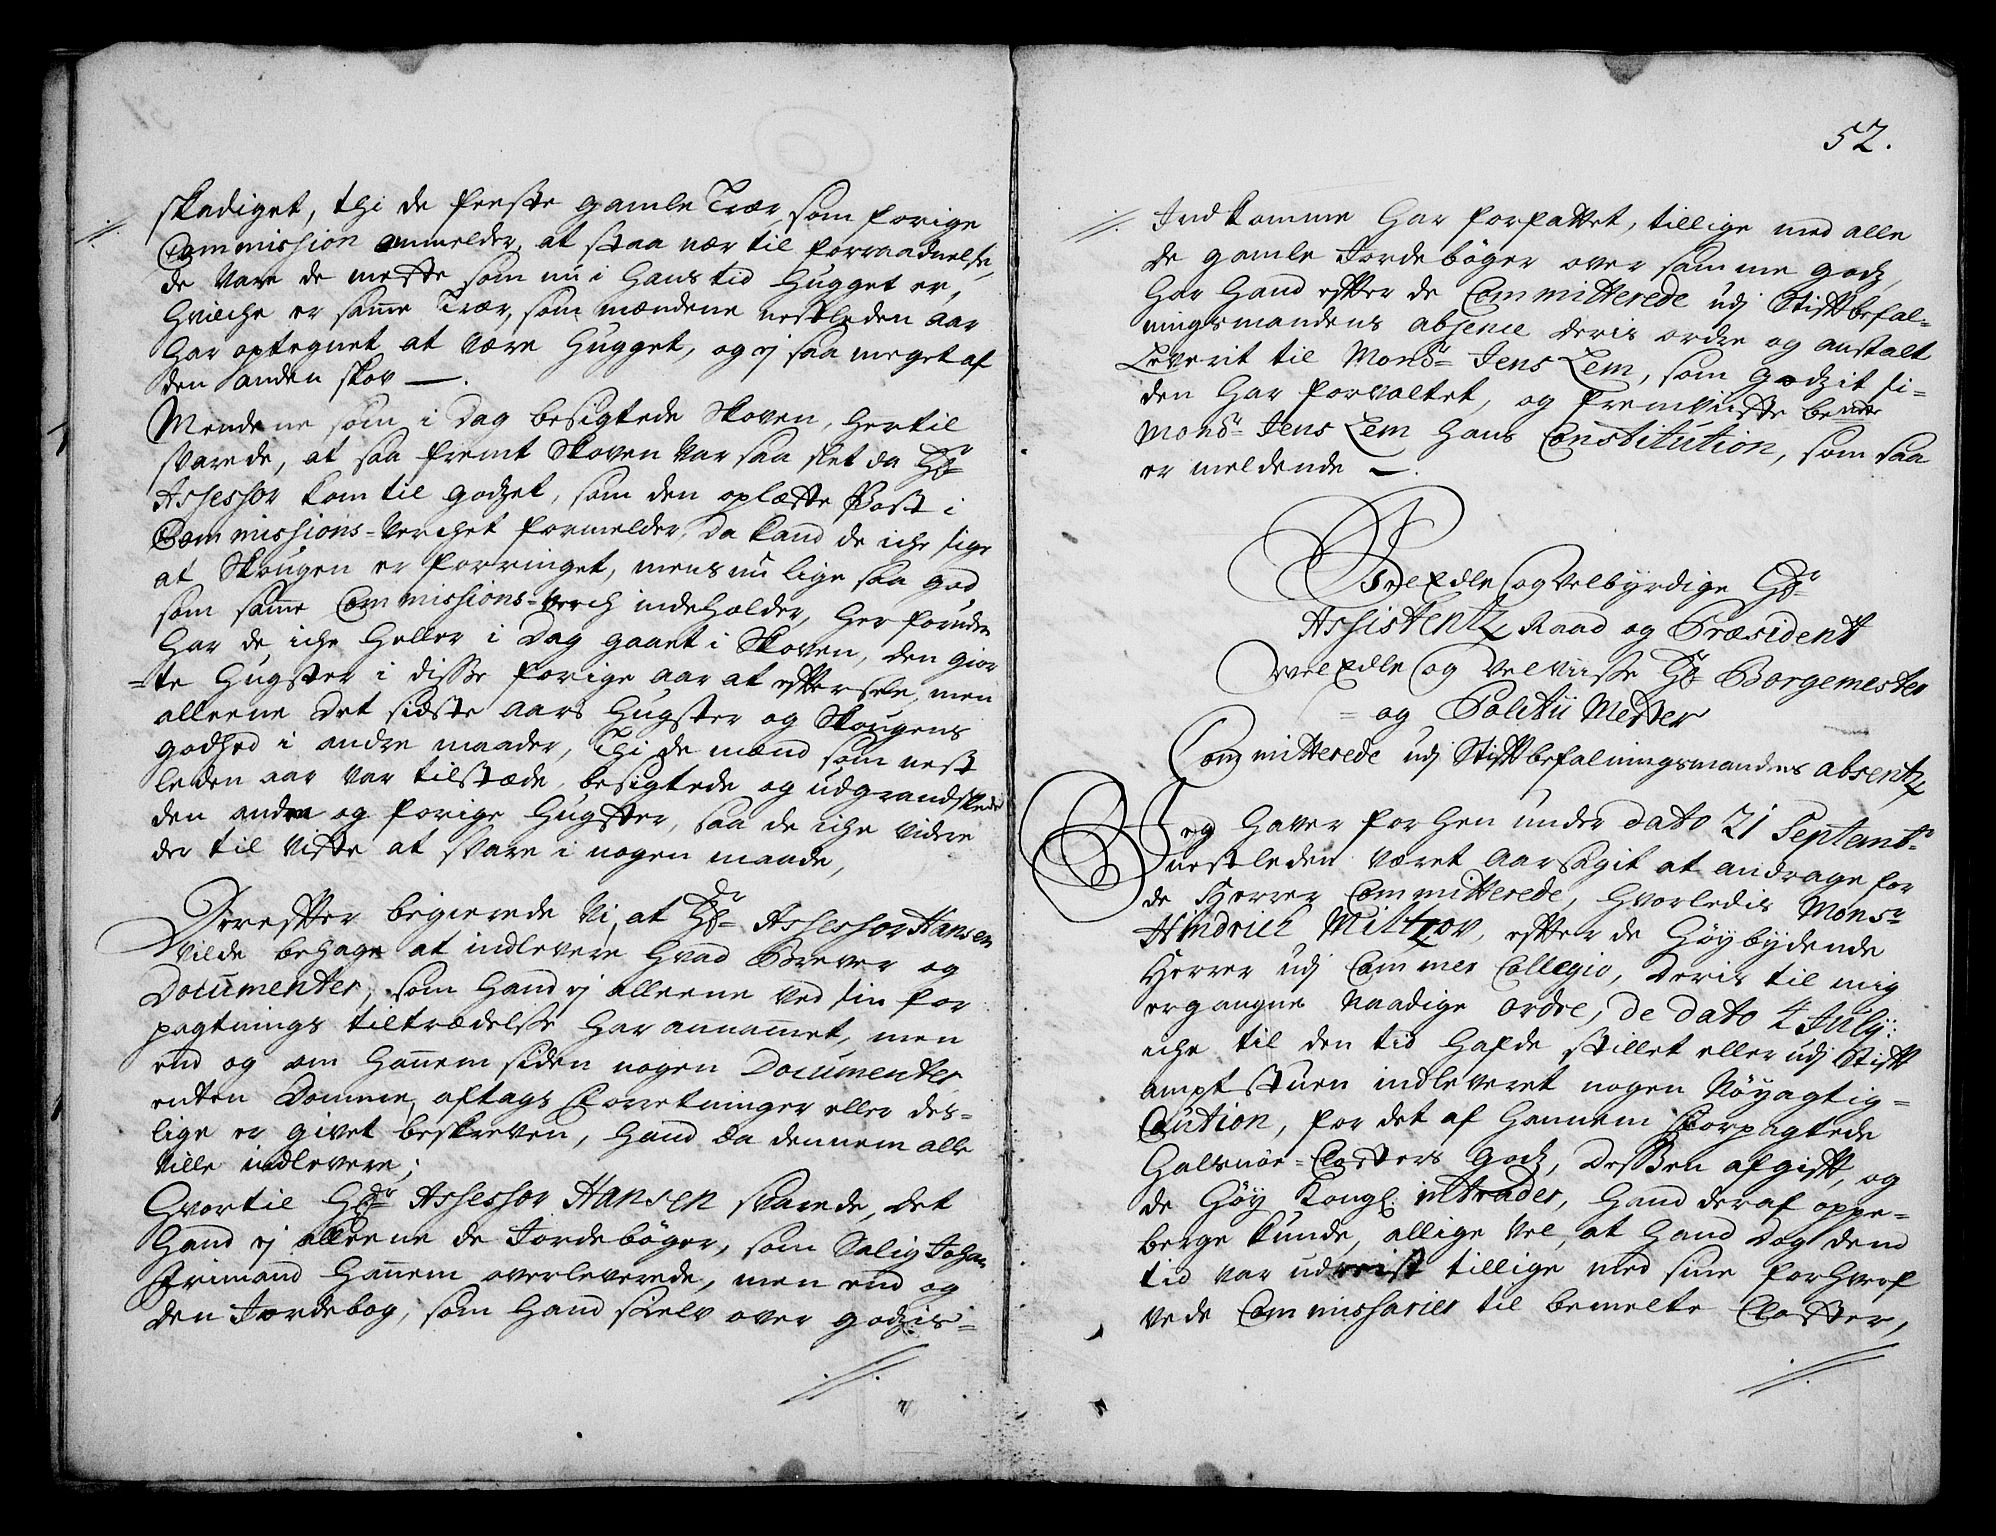 skadiget, thi de fleeste gamle Trær som forige
Commission anmelder, at staa nær til forraadnelse,
de vare de meste som nu i hans tid hugget er,
hvilche er samme Trær, som mændene nestleden aar
har optegnet at være hugget, og ej saa meget af
den anden skov —.
Mendene som i Dag besigtede Skoven, hertil
svarede, at saa fremt Skoven var saa slet da Hr
Assessor kom til godzet, som den oplæste Post i
Commissions-Verchet formelder, da kand de iche sige
at Skougen er forringet, mens nu lige saa god
som samme Commissions-verch indeholder, her foruden
har de iche heller i Dag gaaet i Skoven, den gior
=te hugster i disse forige aar at eftersee, men
alleene det sidste aars hugster og Skougens
godhed i andre maader, Thi de mænd som nest
leden aar var tilstæde, besigtede og udgrandskede
den andre og forige hugster, saa de iche vidre
der til viste at svare i nogen maade,
Derefter begierede Vi, at Hr Assessor Hansen
vilde behage at indlevere hvad Brever og
Documenter, som hand ej alleene ved sin for
pagtnings tiltrædelse har annammet, men
end og om hannem siden nogen Documenter
enten Domme, aftags Forretninger eller des-
lige er givet beskreven, hand da dennem alle
ville indlevere;
Hvortil Hr Assessor Hansen svarede, det
hand ej alleene de Jordebøger, som Salig Johan
Frimand hannem overleverede, men end og
den Jordebog, som hand sielv over godzis=
52.
Indkomme har forfattet, tillige med alle
de gamle Jordebøger over samme godz,
har hand efter de Committerede udj Stiftbefal-
ningsmandens absence deris ordre og anstalt
Leverit til Monsr Jens Lem, som godzit si-
den har forvaltet, og fremviiste bemte
Monsr Jens Lem hans Constitution, som saa
er meldende —.
Velædle og Velbyrdige Hr
Assistentz Raad og Præsident
Velædle og Velviise Hr Borgemester
= og Politii Mester
Committerede udj Stiftbefalningsmandens absentz
Jeg haver forhen under dato 21 Septembr
nestleden været aarsagit at andrage for
de Herrer Committerede, hvorledis Monsr
Hindrich Miltzov, efter de høybydende
Herrer udj Cammer Collegio, deris til mig
ergangne Naadige ordre, de dato 4 July:
iche til den tid hafde stillet eller udj Stift
ampt stuen indleveret nogen Nøyagtig=
Caution, for det af hannem forpagtede
Halsnøe=Closters godz, dessen afgift, og
de høy Kongl. intrader, hand deraf oppe=
berge kunde, allige vel, at hand dog dend
tid var udreist tillige med sine forhverf
vede Commissarier til bemelte Closter,